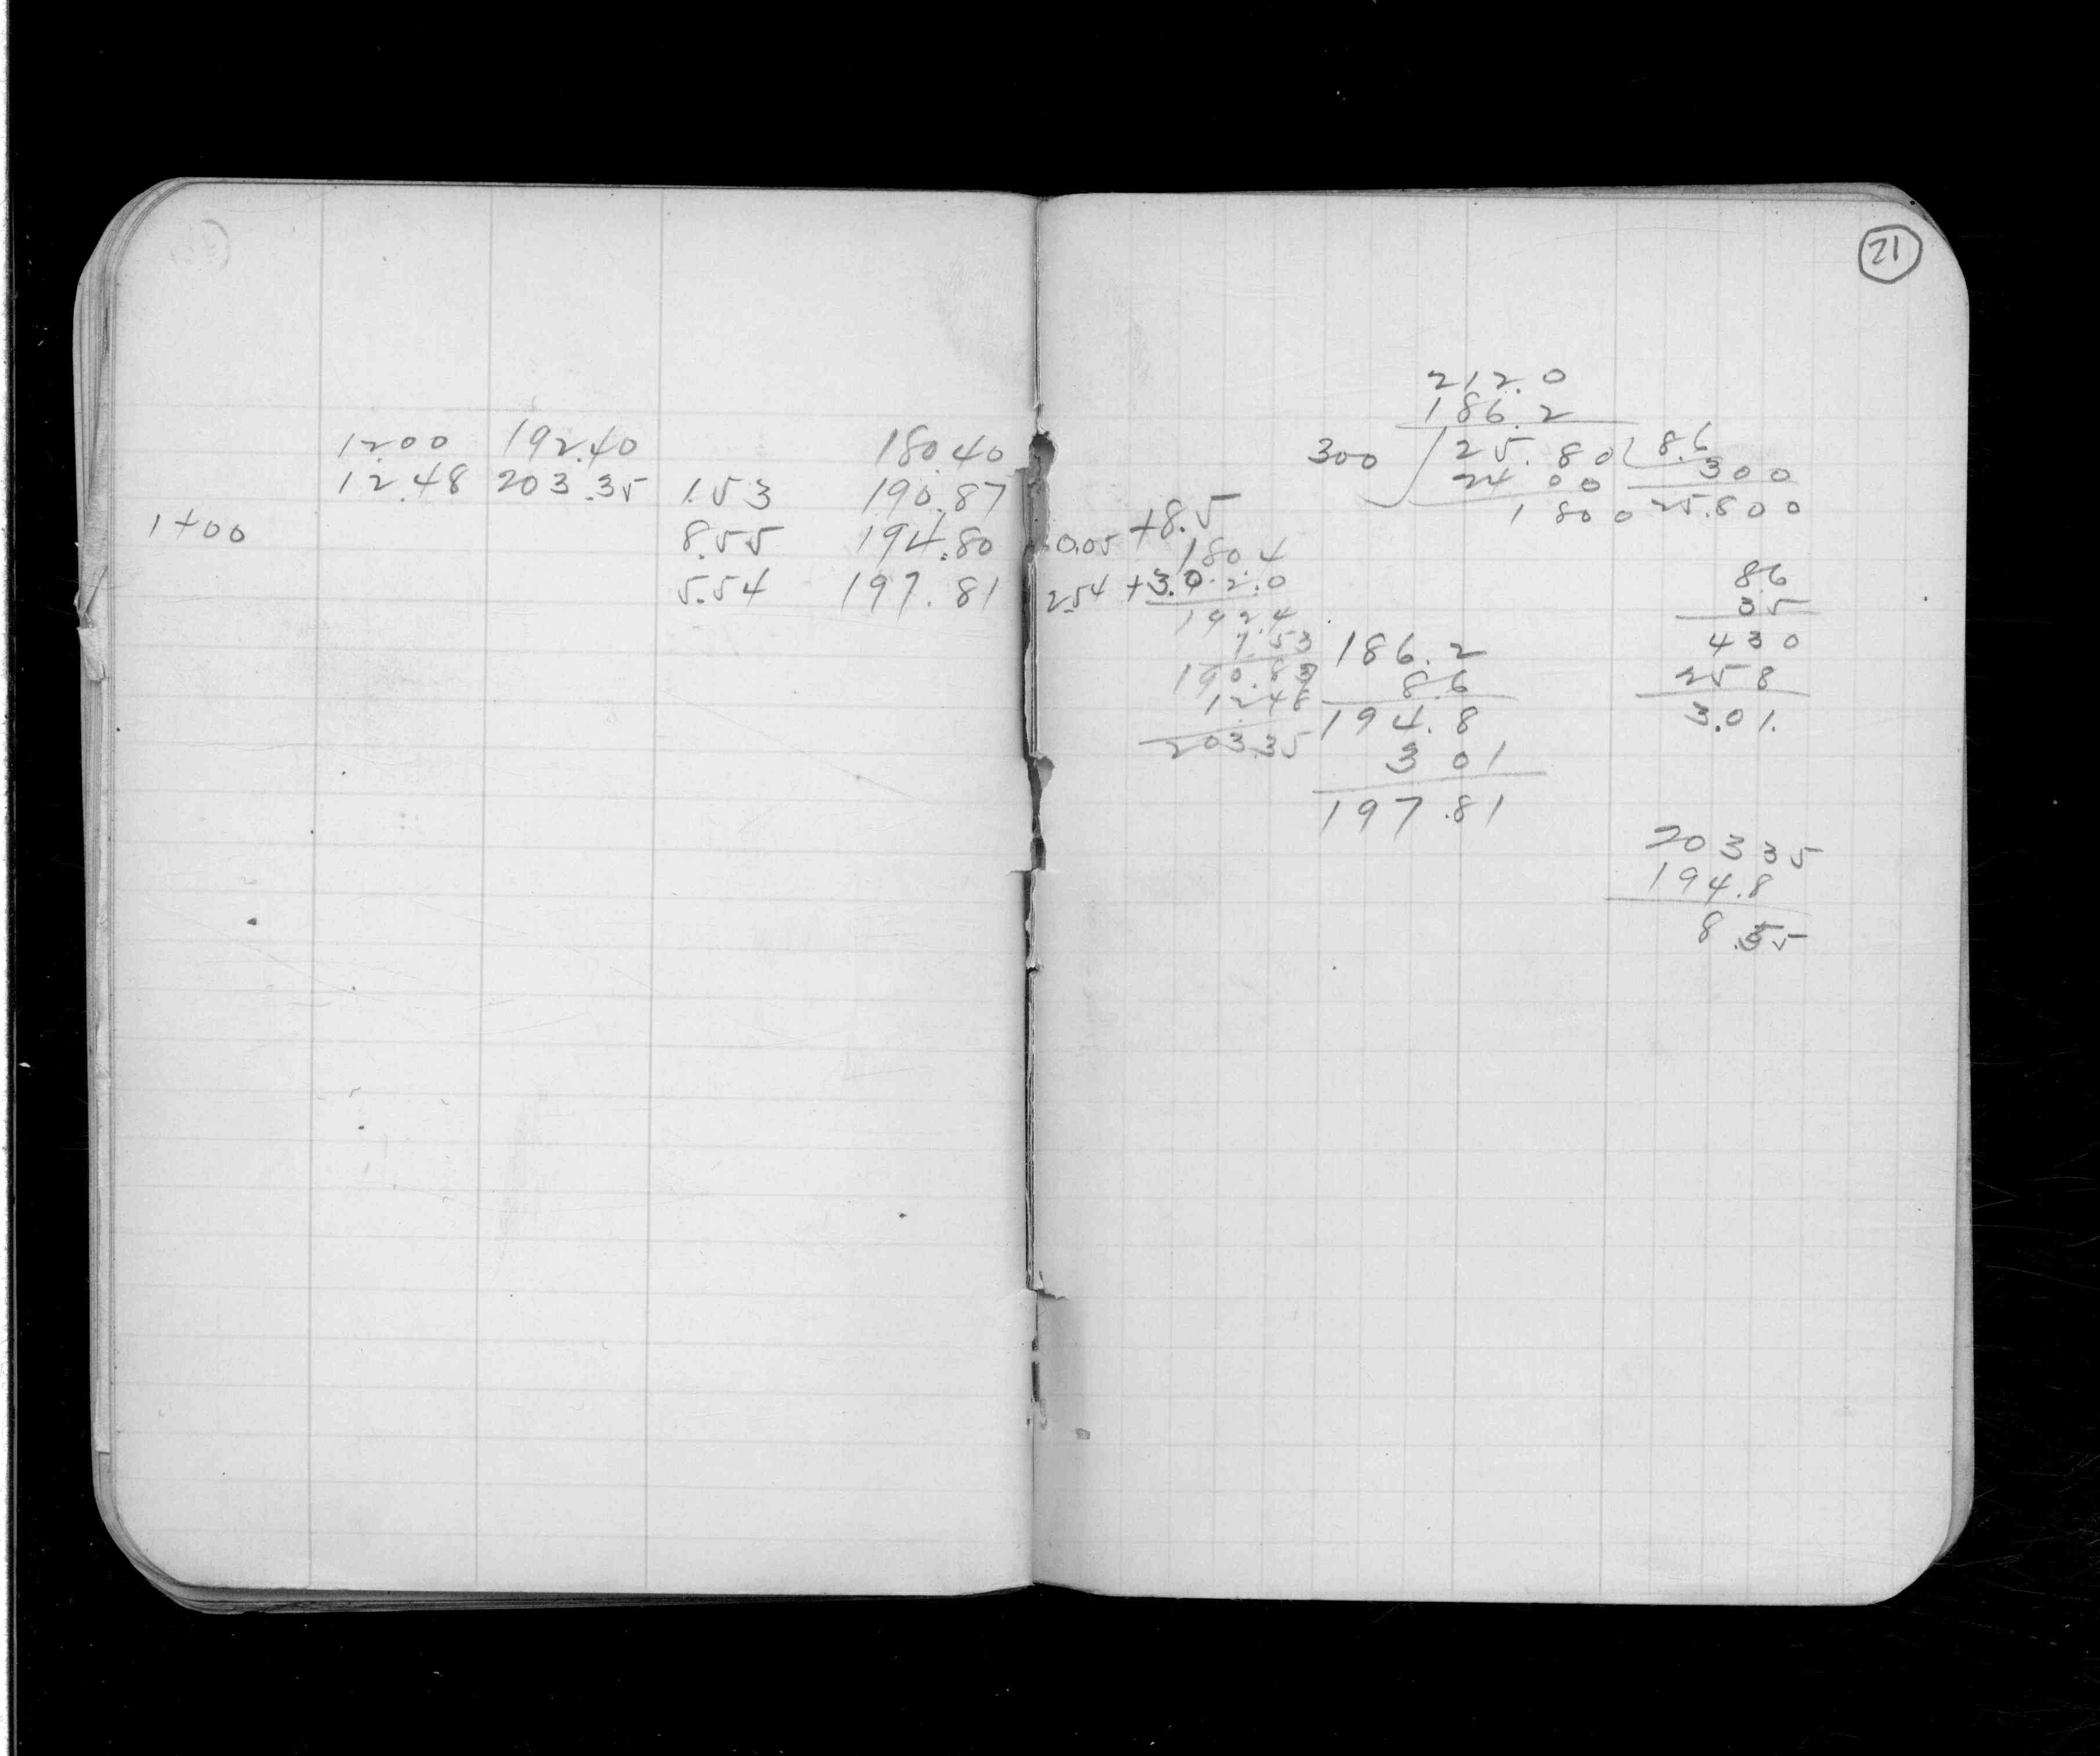 12.00 192.40 180.40
12.48 203.35 1.53 190.87
1+00 8.55 194.80
5.54 197.81
21
212.0
186.2
300 25.80 8.6
24 00 300
1 80 0 25.800
0.05 +8.5
180.4
2.54 +3.0 2.0
192.4
1.53
190.87
12.48
203.35
186.2
8.6
194.8
3 01
197.81
8.6
35
430
258
3.01.
203 35
194.8
8.55